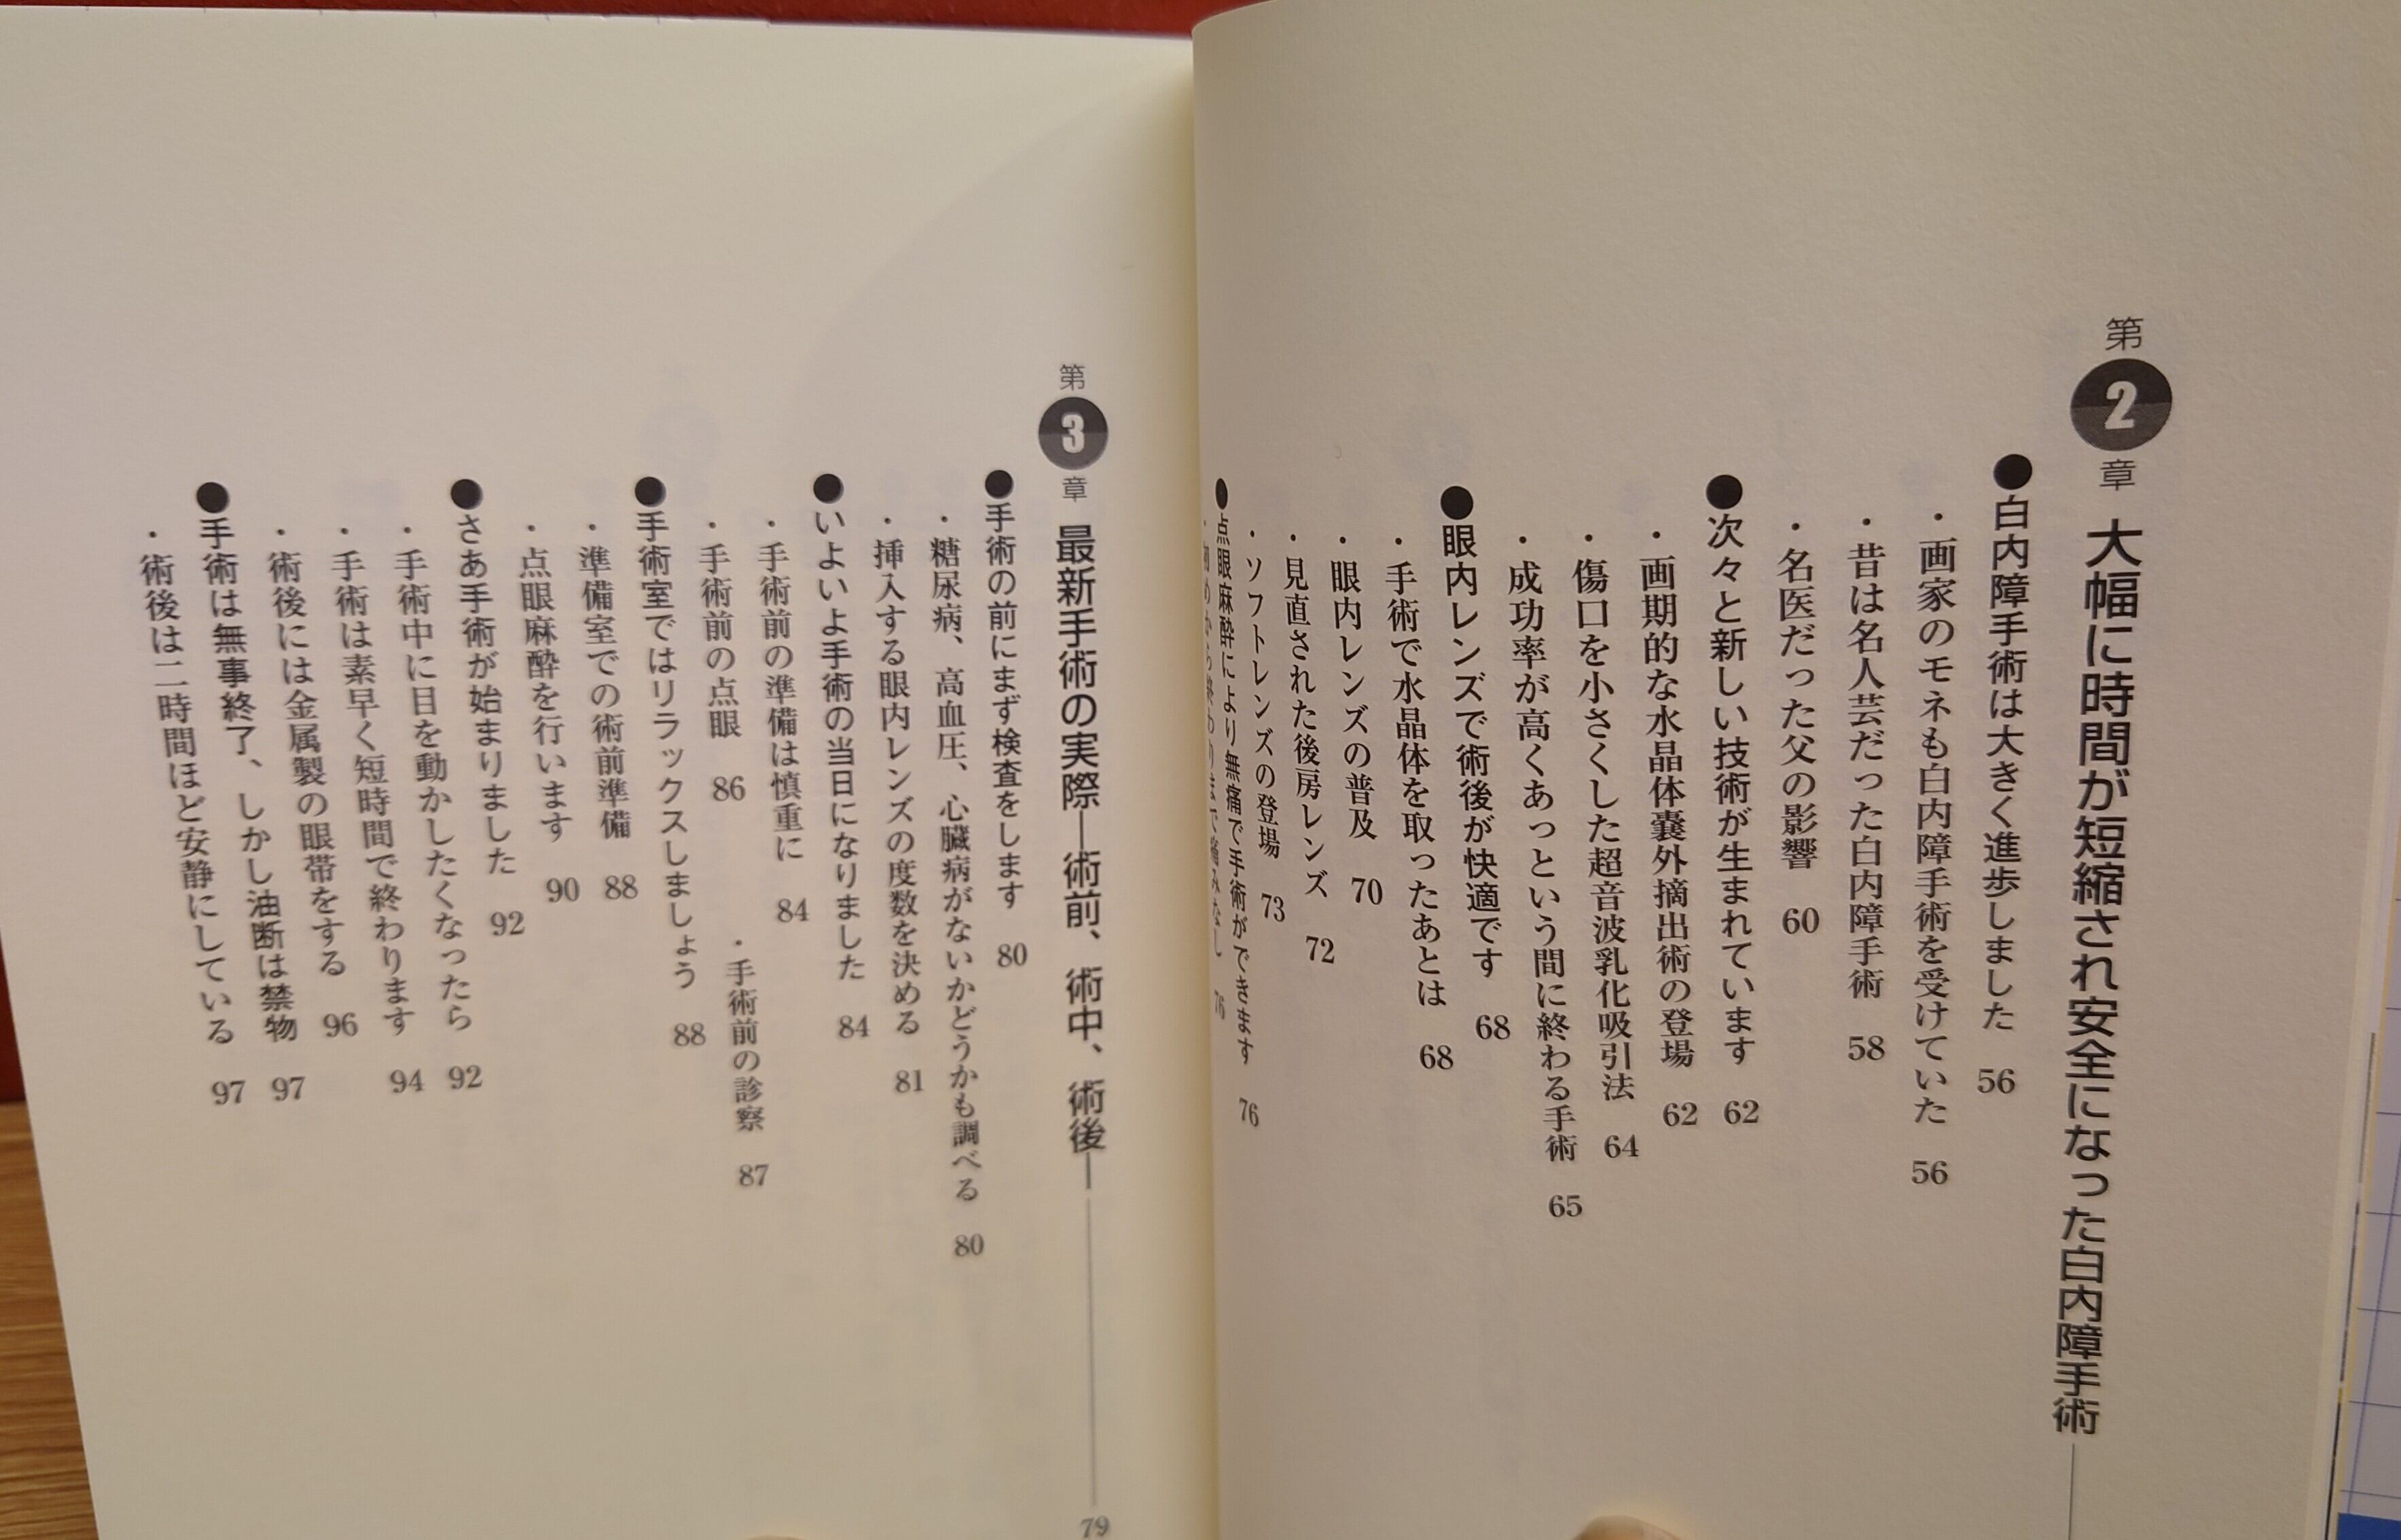 第2章 大幅に時間が短縮され安全になった白内障手術
●白内障手術は大きく進歩しました 56
・画家のモネも白内障手術を受けていた 56
・昔は名人芸だった白内障手術 58
・名医だった父の影響 60
●次々と新しい技術が生まれています 62
・画期的な水晶体嚢外摘出術の登場 62
・傷口を小さくした超音波乳化吸引法 64
・成功率が高くあっという間に終わる手術 65
●眼内レンズで術後が快適です 68
・手術で水晶体を取ったあとは 68
・眼内レンズの普及 70
・見直された後房レンズ 72
・ソフトレンズの登場 73
●点眼麻酔により無痛で手術ができます 76
・初めから終わりまで痛みなし 76
第3章 最新手術の実際―術前、術中、術後― 79
●手術の前にまず検査をします 80
・糖尿病、高血圧、心臓病がないかどうかも調べる 80
・挿入する眼内レンズの度数を決める 81
●いよいよ手術の当日になりました 84
・手術前の準備は慎重に 84
・手術前の点眼 86
・手術前の診察 87
●手術室ではリラックスしましょう 88
・準備室での術前準備 88
・点眼麻酔を行います 90
●さあ手術が始まりました 92
・手術中に目を動かしたくなったら 92
・手術は素早く短時間で終わります 94
・術後には金属製の眼帯をする 96
●手術は無事終了、しかし油断は禁物 97
・術後は二時間ほど安静にしている 97